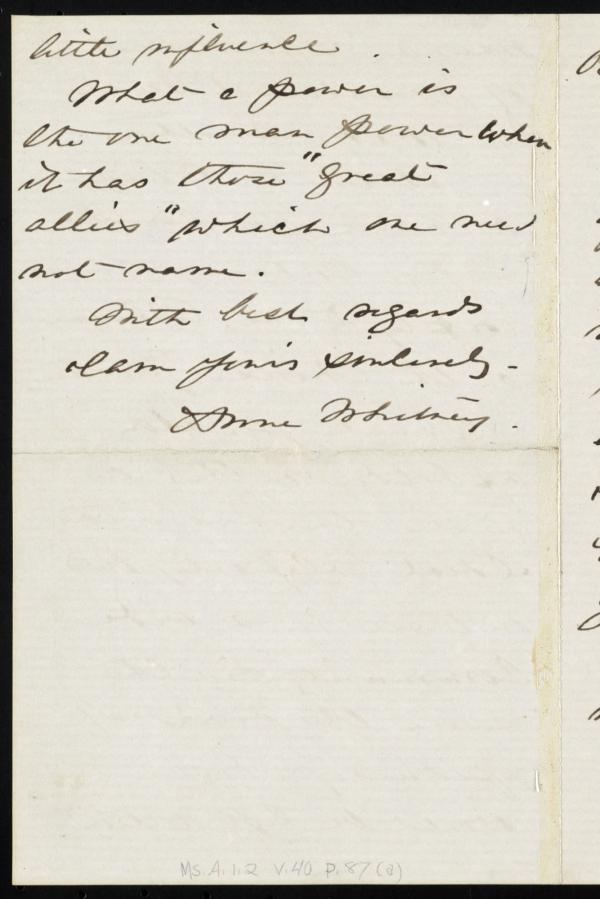 little influence.
What a power is
the one man power when
it has those "great
allies" which one need
not name.
With best regards
I am yours sincerely -
Anne Whitney.
Ms. A. 1. 2 V. 40 P. 87 (a)